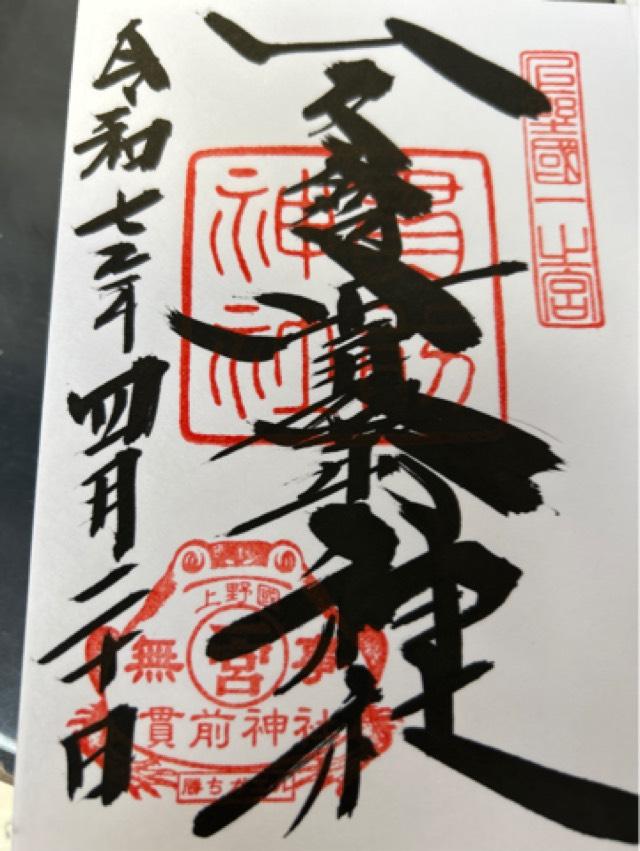 上野國一之宮
一之宮貫前神社
貫前
神社
令和七年四月二十日
上野國
無 一宮 事
貫前神社
勝ちガエル